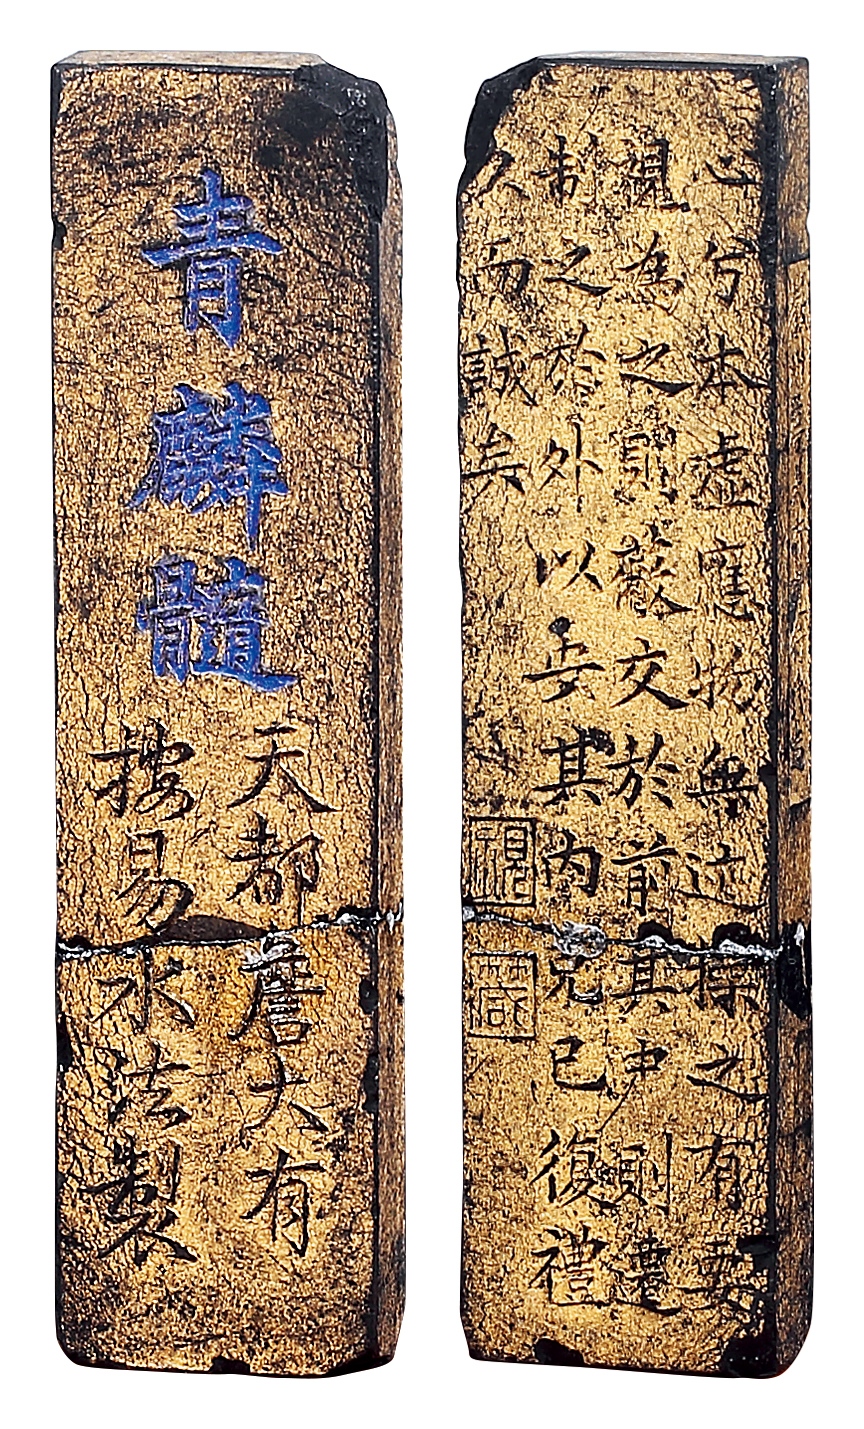 青麟髓
天都詹大有
按易水法製
心兮本虛應物無迹操之有要
視為之則蔽交於前其中則遷
制之於外以安其內克己復禮
久而誠矣
視
箴